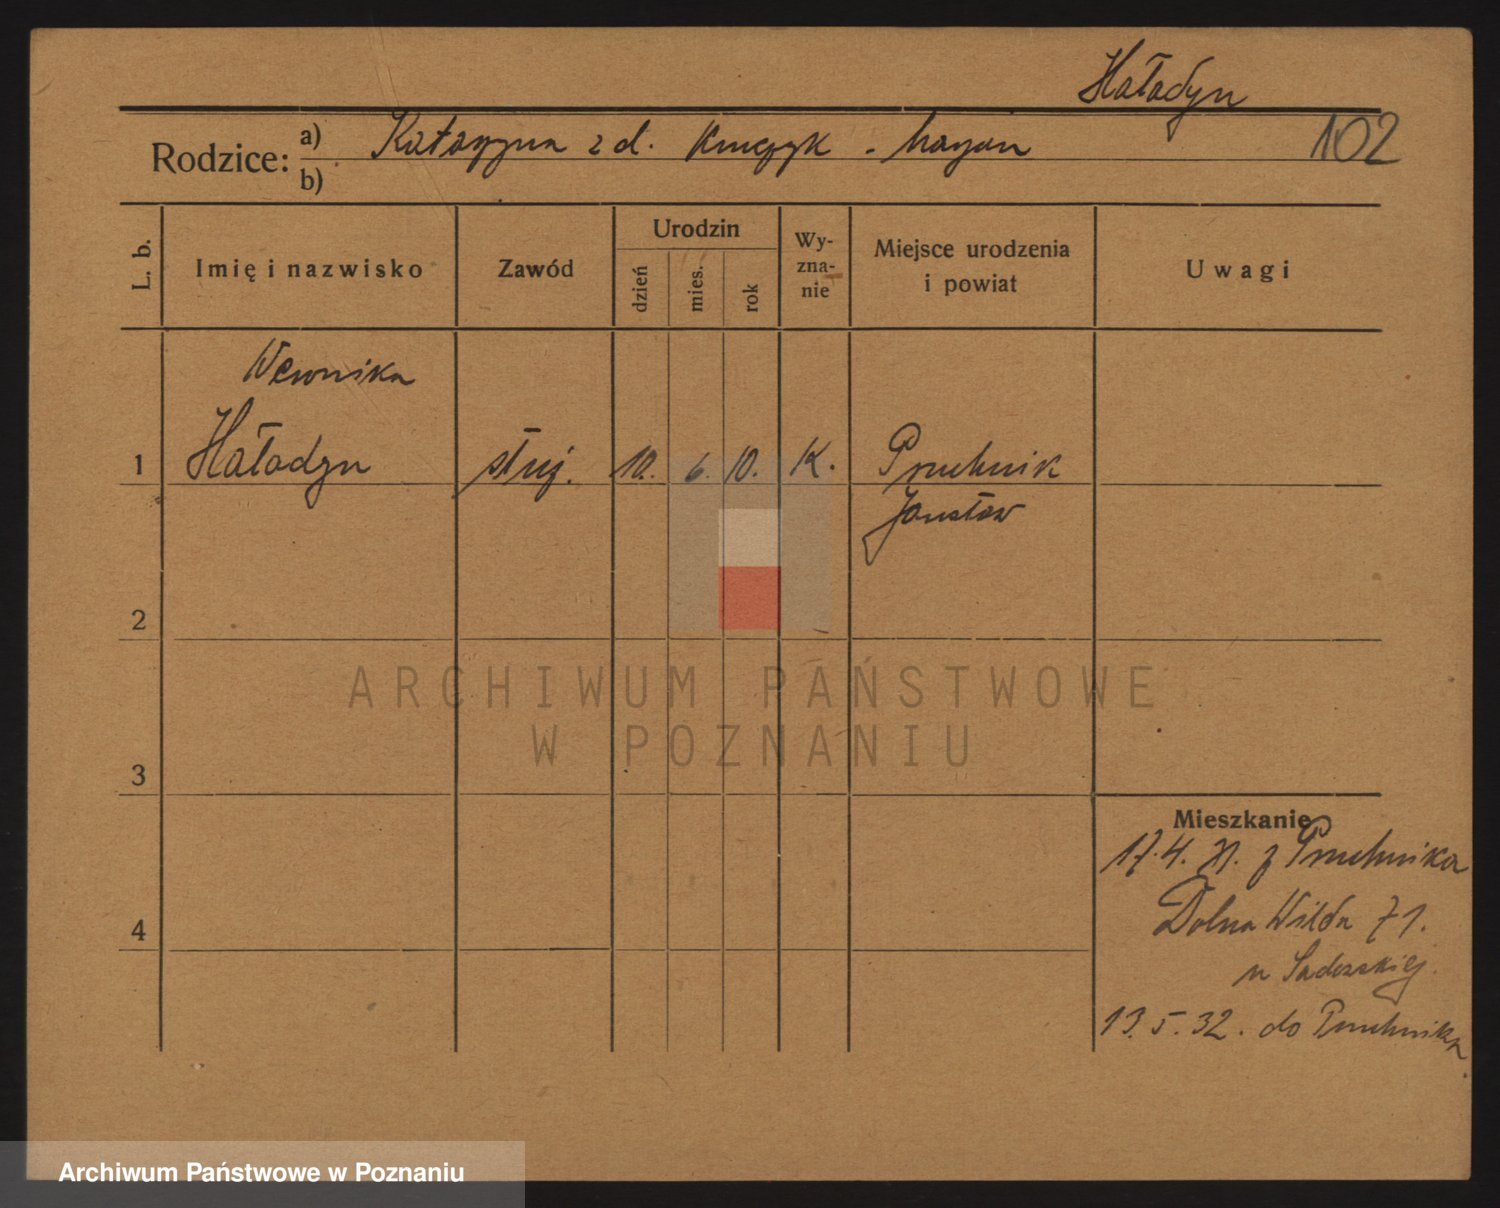 Haładyn
102
Rodzice: a) Katarzyna z d. Kmeczyk - Maryan
b)
L. b.
Imię i nazwisko
Zawód
Urodzin
dzień
mies.
rok
Wy-
zna-
nie
Miejsce urodzenia
i powiat
Uwagi
Weronika
1 Haładyn służ. 10. 6. 10. K. Pruchnik
Jarosław
2
3
4
Mieszkanie
17.4. z Pruchnika
Dolna Wilda 71.
u
13.5.32. do Pruchnika
ARCHIWUM PAŃSTWOWE
W POZNANIU
Archiwum Państwowe w Poznaniu